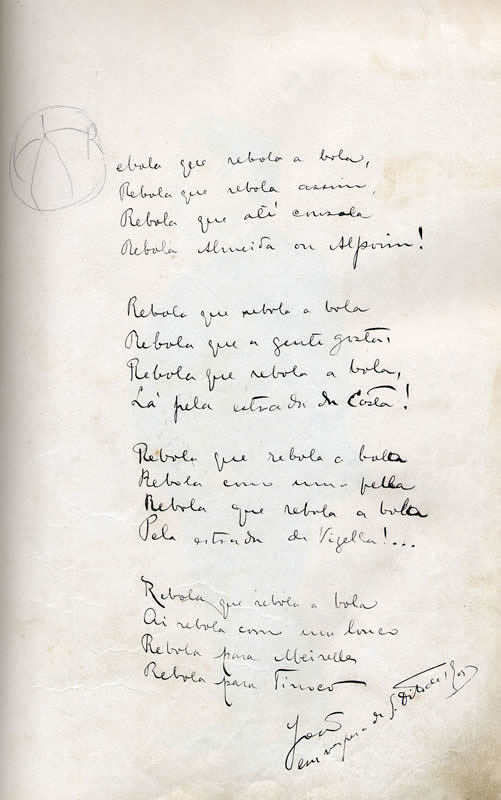 Rebola que rebola a bola,
Rebola que rebola assim,
Rebola que até consola
Rebola Almeida ou Alpoim!
Rebola que rebola a bola
Rebola que a gente gosta,
Rebola que rebola a bola,
Lá pela estrada da Costa!
Rebola que rebola a bola
Rebola como uma pella
Rebola que rebola a bola
Pela estrada de Vizella!...
Rebola que rebola a bola
Ai rebola com um louco
Rebola para Meirelles
Rebola para
João
em vespera de S.